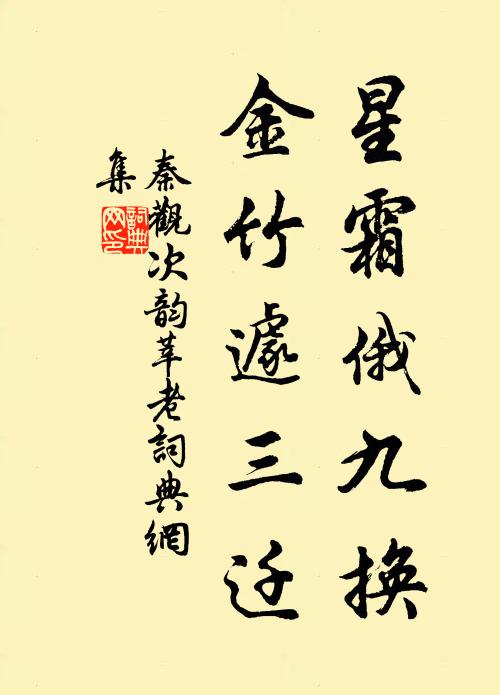 星霜俄九換
金竹遽三迁
秦觀次韵莘老詞典網
集
詞典
网印